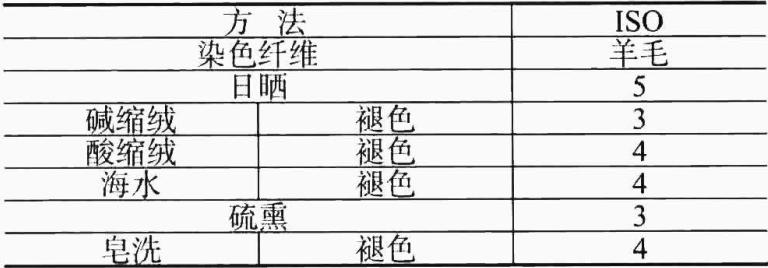 方 法 ISO
染色纤维 羊毛
日晒 5
碱缩绒 褪色 3
酸缩绒 褪色 4
海水 褪色 4
硫熏 3
皂洗 褪色 4